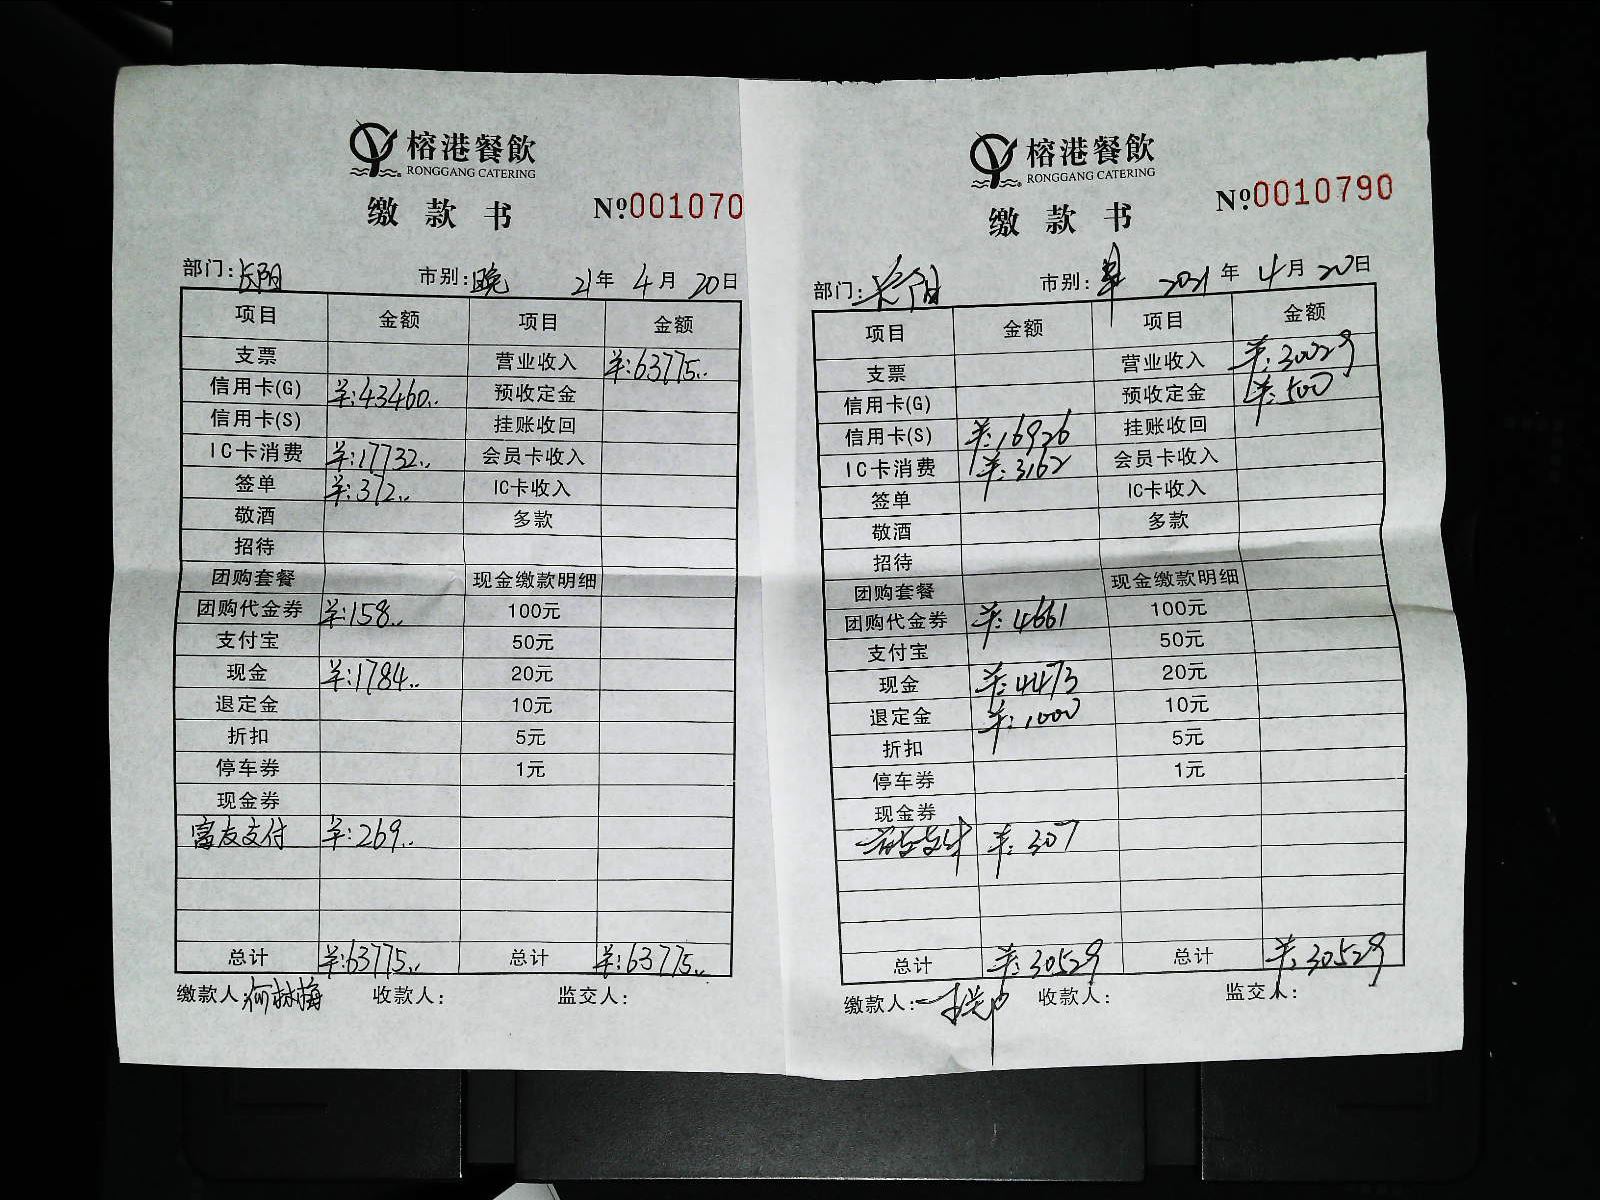 榕港餐飲
RONGGANG CATERING
缴款书
Nº001070
部门:长阳 市别:晚 21年4月20日
项目 金额 项目 金额
支票 营业收入 羊:63775..
信用卡(G) 羊:43460.. 预收定金
信用卡(S) 挂账收回
IC卡消费 羊:17732.. 会员卡收入
签单 羊:372.. IC卡收入
敬酒 多款
招待
团购套餐 现金缴款明细
团购代金券 羊:158.. 100元
支付宝 50元
现金 羊:1784.. 20元
退定金 10元
折扣 5元
停车券 1元
现金券
富友支付 羊:269..
总计 羊:63775.. 总计 羊:63775..
缴款人:何林梅 收款人: 监交人:
榕港餐飲
RONGGANG CATERING
缴款书
Nº0010790
部门:长阳 市别: 2021年4月20日
项目 金额 项目 金额
支票 营业收入 羊:30029
信用卡(G) 预收定金 羊:500
信用卡(S) 羊:16926 挂账收回
IC卡消费 羊:3162 会员卡收入
签单 IC卡收入
敬酒 多款
招待
团购套餐 现金缴款明细
团购代金券 羊:4661 100元
支付宝 50元
现金 羊:4473 20元
退定金 羊:1000 10元
折扣 5元
停车券 1元
现金券
羊:307
总计 羊:30529 总计 羊:30529
缴款人: 收款人: 监交人: